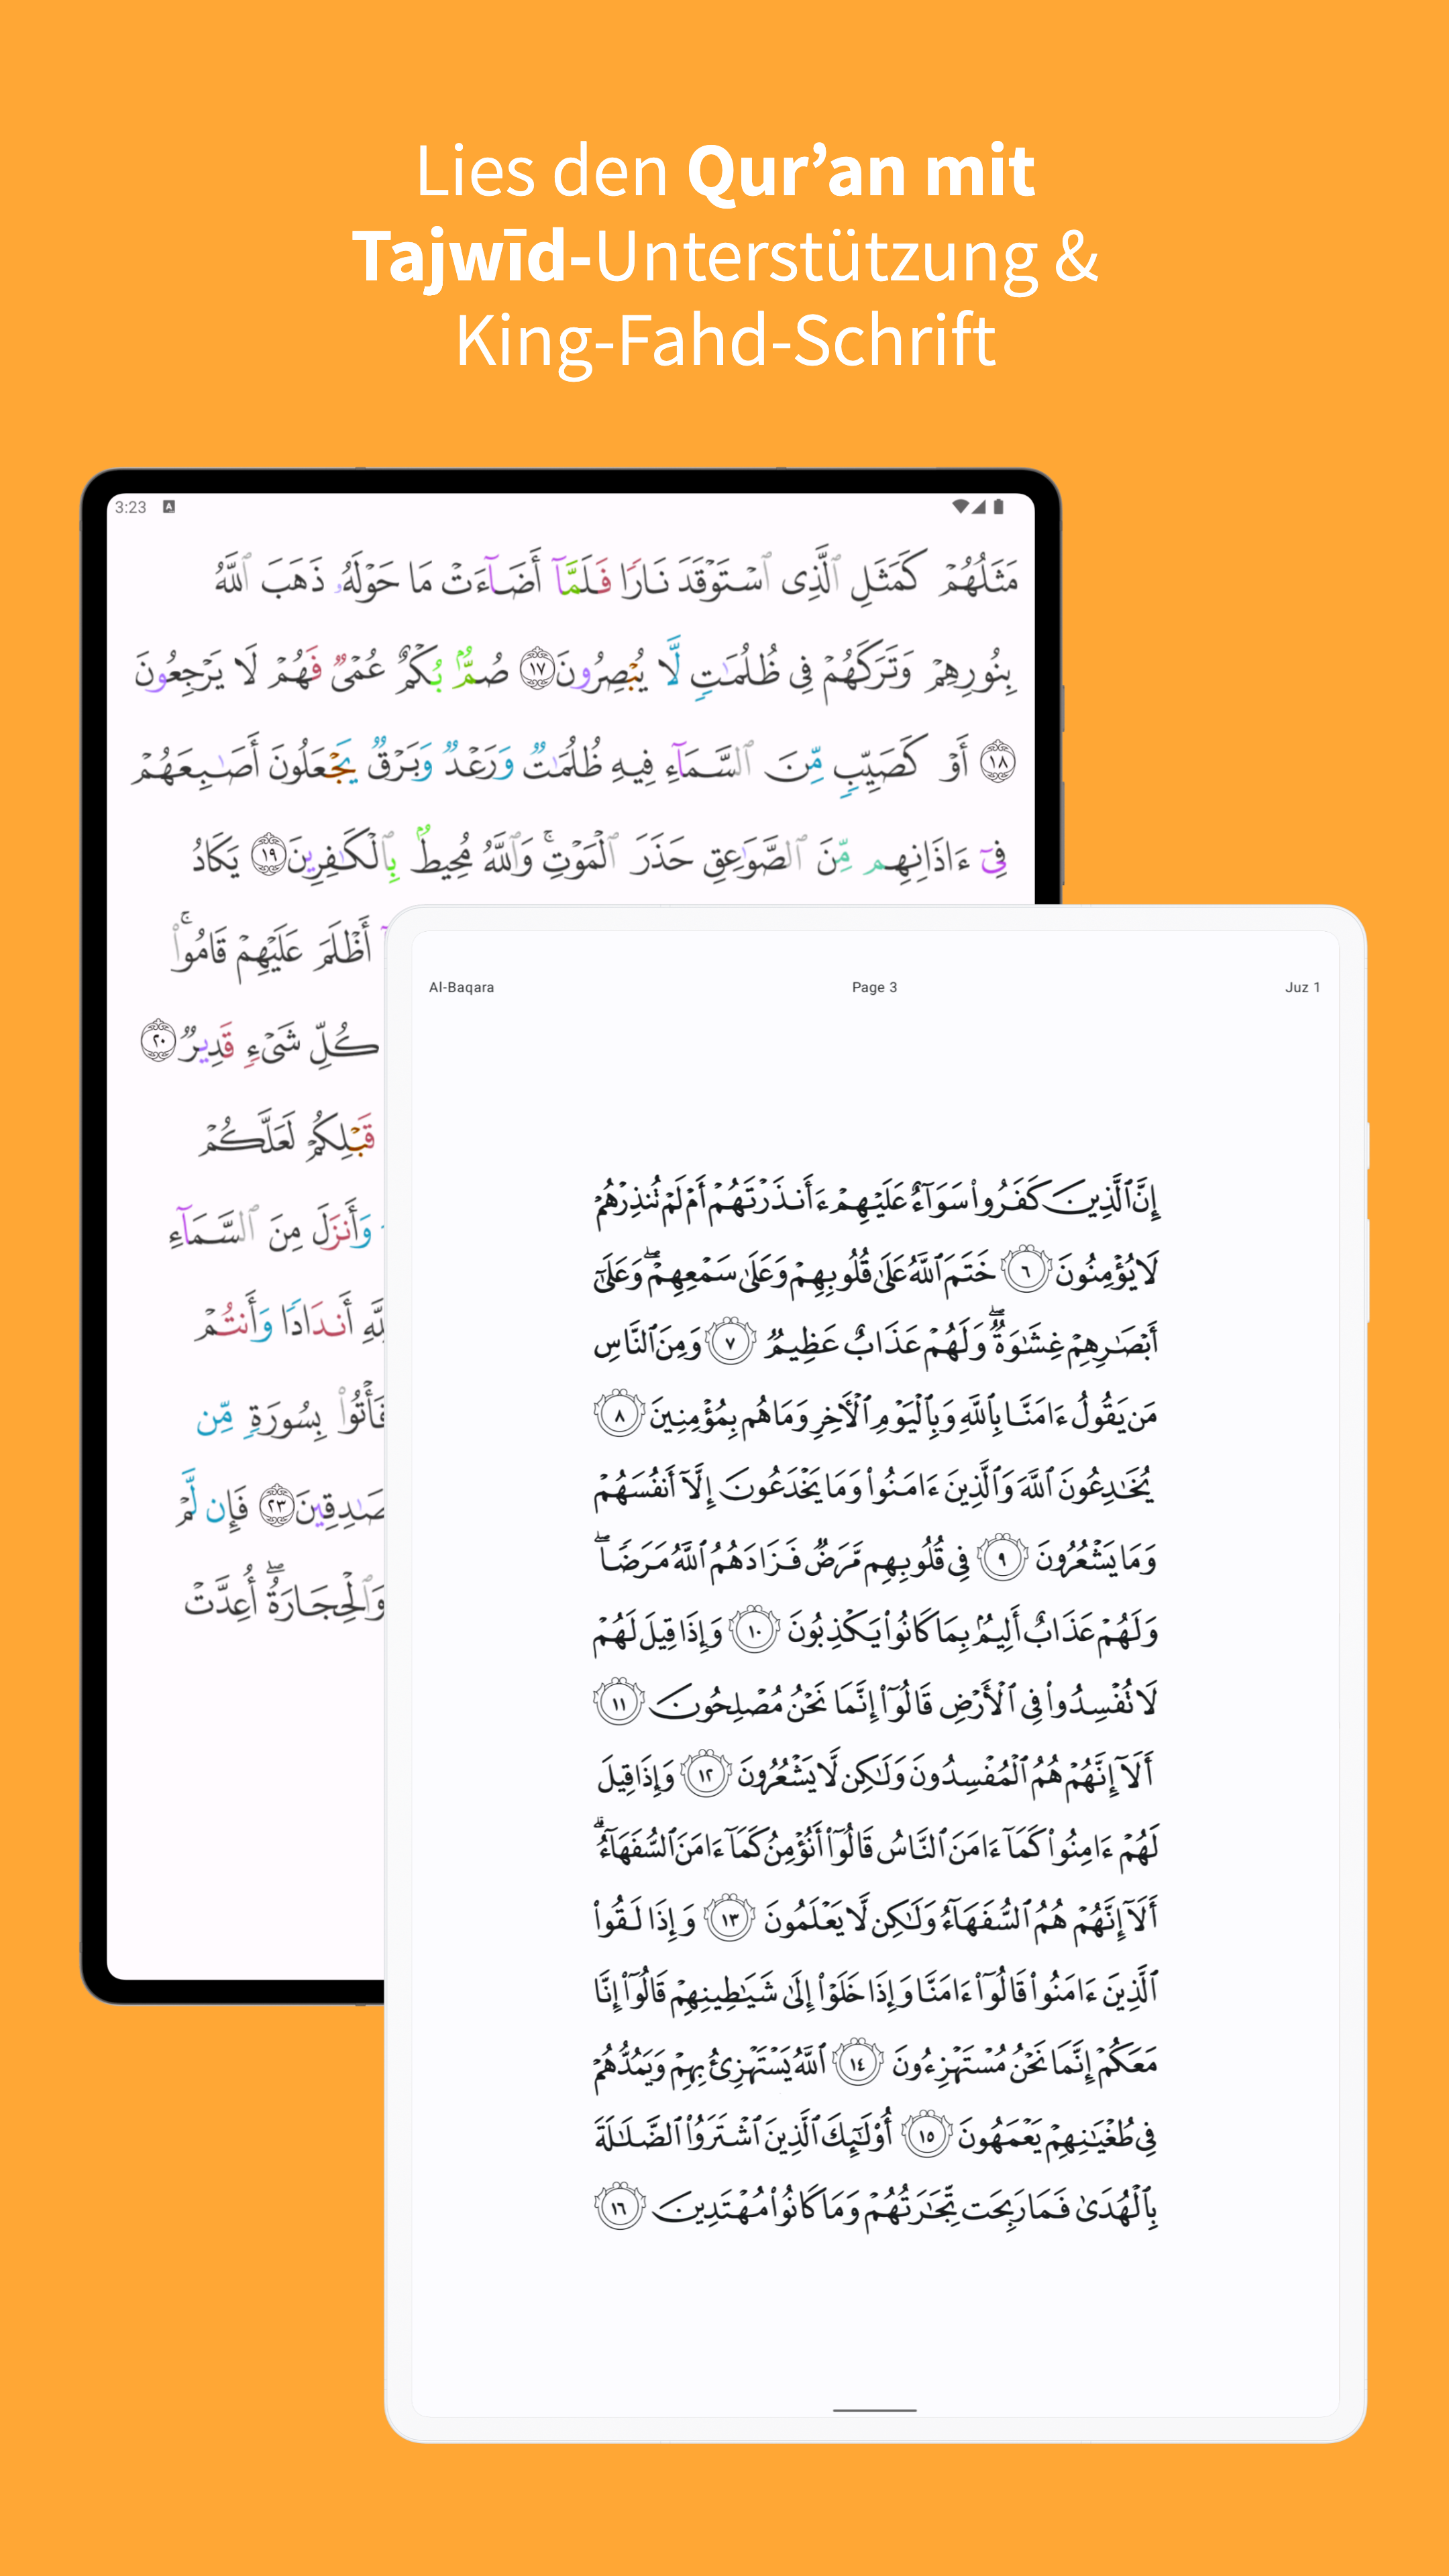 Lies den Qur’an mit
Tajwīd-Unterstützung &
King-Fahd-Schrift
3:23
A
مَثَلُهُمْ كَمَثَلِ ٱلَّذِى ٱسْتَوْقَدَ نَارًا فَلَمَّآ أَضَآءَتْ مَا حَوْلَهُۥ ذَهَبَ ٱللَّهُ
بِنُورِهِمْ وَتَرَكَهُمْ فِى ظُلُمَٰتٍ لَّا يُبْصِرُونَ ١٧ صُمٌّۢ بُكْمٌ عُمْىٌ فَهُمْ لَا يَرْجِعُونَ
١٨ أَوْ كَصَيِّبٍ مِّنَ ٱلسَّمَآءِ فِيهِ ظُلُمَٰتٌ وَرَعْدٌ وَبَرْقٌ يَجْعَلُونَ أَصَٰبِعَهُمْ
فِىٓ ءَاذَانِهِم مِّنَ ٱلصَّوَٰعِقِ حَذَرَ ٱلْمَوْتِ ۚ وَٱللَّهُ مُحِيطٌۢ بِٱلْكَٰفِرِينَ ١٩ يَكَادُ
أَظْلَمَ عَلَيْهِمْ قَامُوا۟ ۚ
كُلِّ شَىْءٍ قَدِيرٌ ٢٠
قَبْلِكُمْ لَعَلَّكُمْ
وَأَنزَلَ مِنَ ٱلسَّمَآءِ
لِلَّهِ أَندَادًا وَأَنتُمْ
فَأْتُوا۟ بِسُورَةٍ مِّن
صَٰدِقِينَ ٢٣ فَإِن لَّمْ
وَٱلْحِجَارَةُ ۖ أُعِدَّتْ
Al-Baqara Page 3 Juz 1
إِنَّ ٱلَّذِينَ كَفَرُوا۟ سَوَآءٌ عَلَيْهِمْ ءَأَنذَرْتَهُمْ أَمْ لَمْ تُنذِرْهُمْ
لَا يُؤْمِنُونَ ٦ خَتَمَ ٱللَّهُ عَلَىٰ قُلُوبِهِمْ وَعَلَىٰ سَمْعِهِمْ ۖ وَعَلَىٰٓ
أَبْصَٰرِهِمْ غِشَٰوَةٌ ۖ وَلَهُمْ عَذَابٌ عَظِيمٌ ٧ وَمِنَ ٱلنَّاسِ
مَن يَقُولُ ءَامَنَّا بِٱللَّهِ وَبِٱلْيَوْمِ ٱلْءَاخِرِ وَمَا هُم بِمُؤْمِنِينَ ٨
يُخَٰدِعُونَ ٱللَّهَ وَٱلَّذِينَ ءَامَنُوا۟ وَمَا يَخْدَعُونَ إِلَّآ أَنفُسَهُمْ
وَمَا يَشْعُرُونَ ٩ فِى قُلُوبِهِم مَّرَضٌ فَزَادَهُمُ ٱللَّهُ مَرَضًا ۖ
وَلَهُمْ عَذَابٌ أَلِيمٌۢ بِمَا كَانُوا۟ يَكْذِبُونَ ١٠ وَإِذَا قِيلَ لَهُمْ
لَا تُفْسِدُوا۟ فِى ٱلْأَرْضِ قَالُوٓا۟ إِنَّمَا نَحْنُ مُصْلِحُونَ ١١
أَلَآ إِنَّهُمْ هُمُ ٱلْمُفْسِدُونَ وَلَٰكِن لَّا يَشْعُرُونَ ١٢ وَإِذَا قِيلَ
لَهُمْ ءَامِنُوا۟ كَمَآ ءَامَنَ ٱلنَّاسُ قَالُوٓا۟ أَنُؤْمِنُ كَمَآ ءَامَنَ ٱلسُّفَهَآءُ ۗ
أَلَآ إِنَّهُمْ هُمُ ٱلسُّفَهَآءُ وَلَٰكِن لَّا يَعْلَمُونَ ١٣ وَإِذَا لَقُوا۟
ٱلَّذِينَ ءَامَنُوا۟ قَالُوٓا۟ ءَامَنَّا وَإِذَا خَلَوْا۟ إِلَىٰ شَيَٰطِينِهِمْ قَالُوٓا۟ إِنَّا
مَعَكُمْ إِنَّمَا نَحْنُ مُسْتَهْزِءُونَ ١٤ ٱللَّهُ يَسْتَهْزِئُ بِهِمْ وَيَمُدُّهُمْ
فِى طُغْيَٰنِهِمْ يَعْمَهُونَ ١٥ أُو۟لَٰٓئِكَ ٱلَّذِينَ ٱشْتَرَوُا۟ ٱلضَّلَٰلَةَ
بِٱلْهُدَىٰ فَمَا رَبِحَت تِّجَٰرَتُهُمْ وَمَا كَانُوا۟ مُهْتَدِينَ ١٦